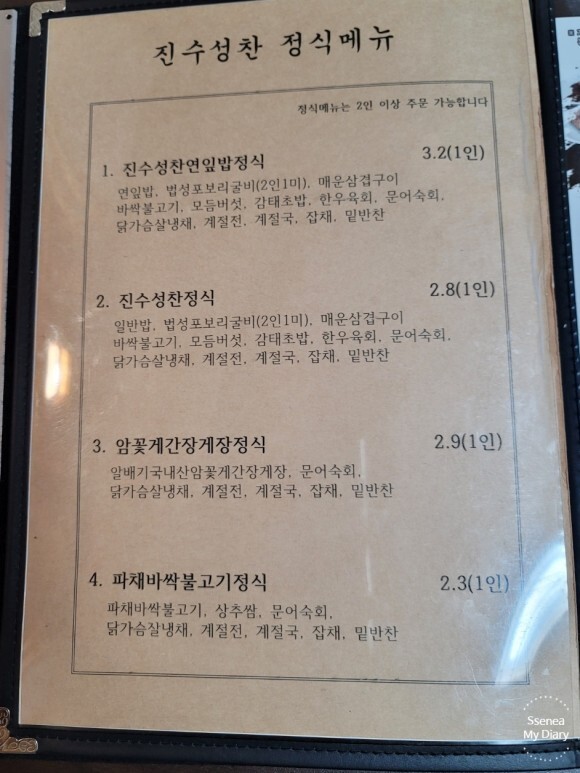 진수성찬 정식메뉴
정식메뉴는 2인 이상 주문 가능합니다
1. 진수성찬연잎밥정식 3.2(1인)
연잎밥, 법성포보리굴비(2인1미), 매운삼겹구이
바싹불고기, 모듬버섯, 감태초밥, 한우육회, 문어숙회,
닭가슴살냉채, 계절전, 계절국, 잡채, 밑반찬
2. 진수성찬정식 2.8(1인)
일반밥, 법성포보리굴비(2인1미), 매운삼겹구이
바싹불고기, 모듬버섯, 감태초밥, 한우육회, 문어숙회,
닭가슴살냉채, 계절전, 계절국, 잡채, 밑반찬
3. 암꽃게간장게장정식 2.9(1인)
알배기국내산암꽃게간장게장, 문어숙회,
닭가슴살냉채, 계절전, 계절국, 잡채, 밑반찬
4. 파채바싹불고기정식 2.3(1인)
파채바싹불고기, 상추쌈, 문어숙회,
닭가슴살냉채, 계절전, 계절국, 잡채, 밑반찬
Ssenea
My Diary